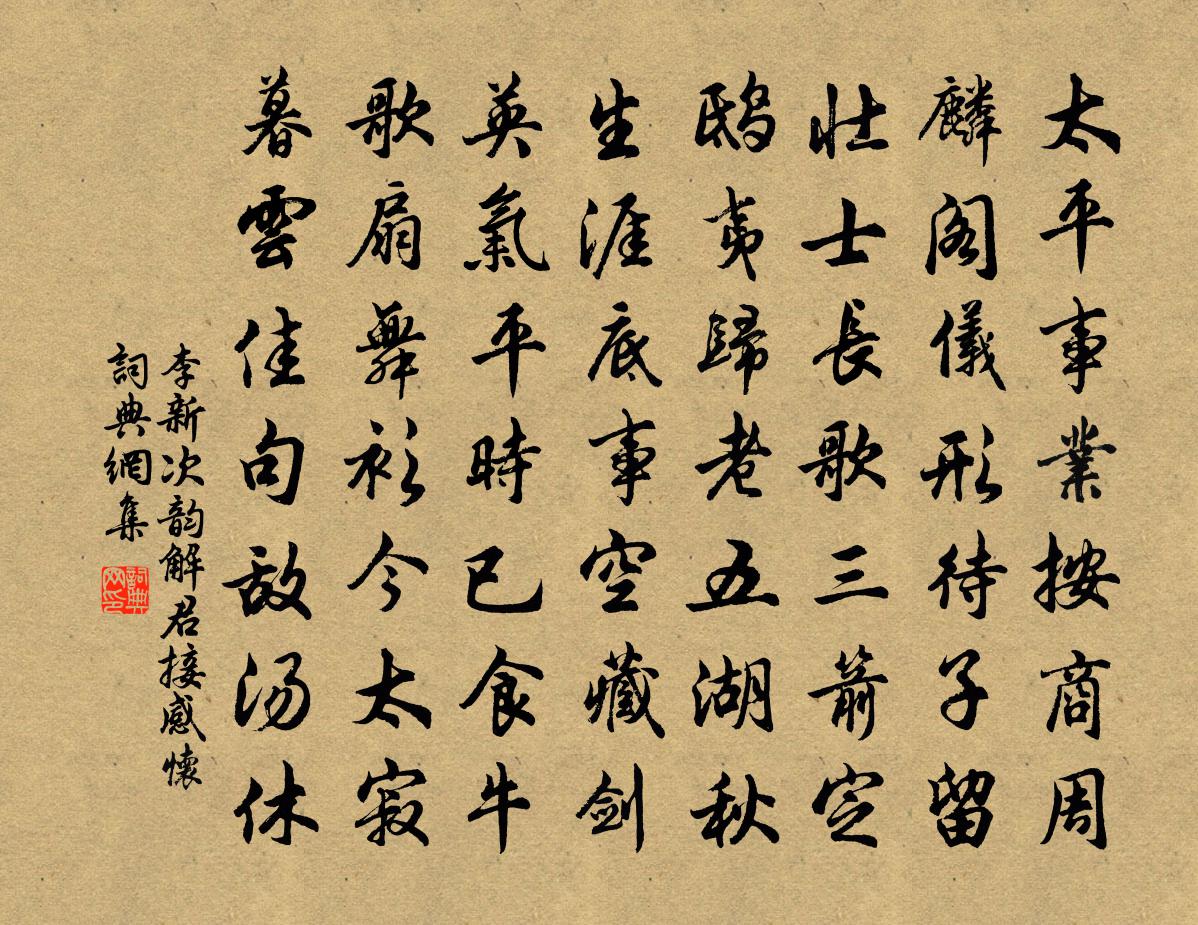 太平事業按商周
麟閣儀形待子留
壯士長歌三箭定
鴟夷歸老五湖秋
生涯底事空藏劍
英氣平時已食牛
歌扇舞衫今太寂
暮雲佳句敵湯休
李新次韵解君接感懷
詞典網集
詞典网印